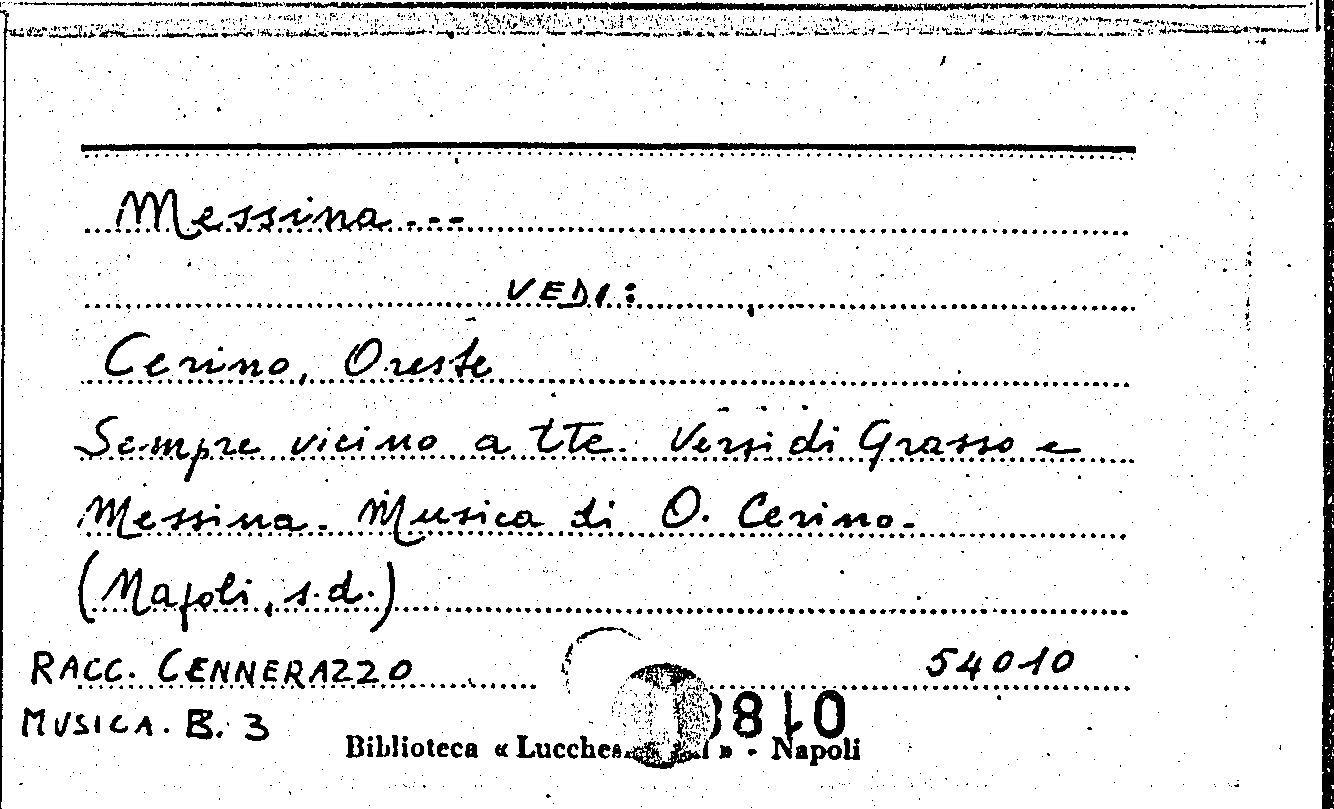 Messina ---
VEDI:
Cerino, Oreste
Sempre vicino a tte. Versi di Grasso e
Messina. Musica di O. Cerino.
(Napoli, s.d.)
RACC. CENNERAZZO 54010
MUSICA. B. 3
Biblioteca « » - Napoli